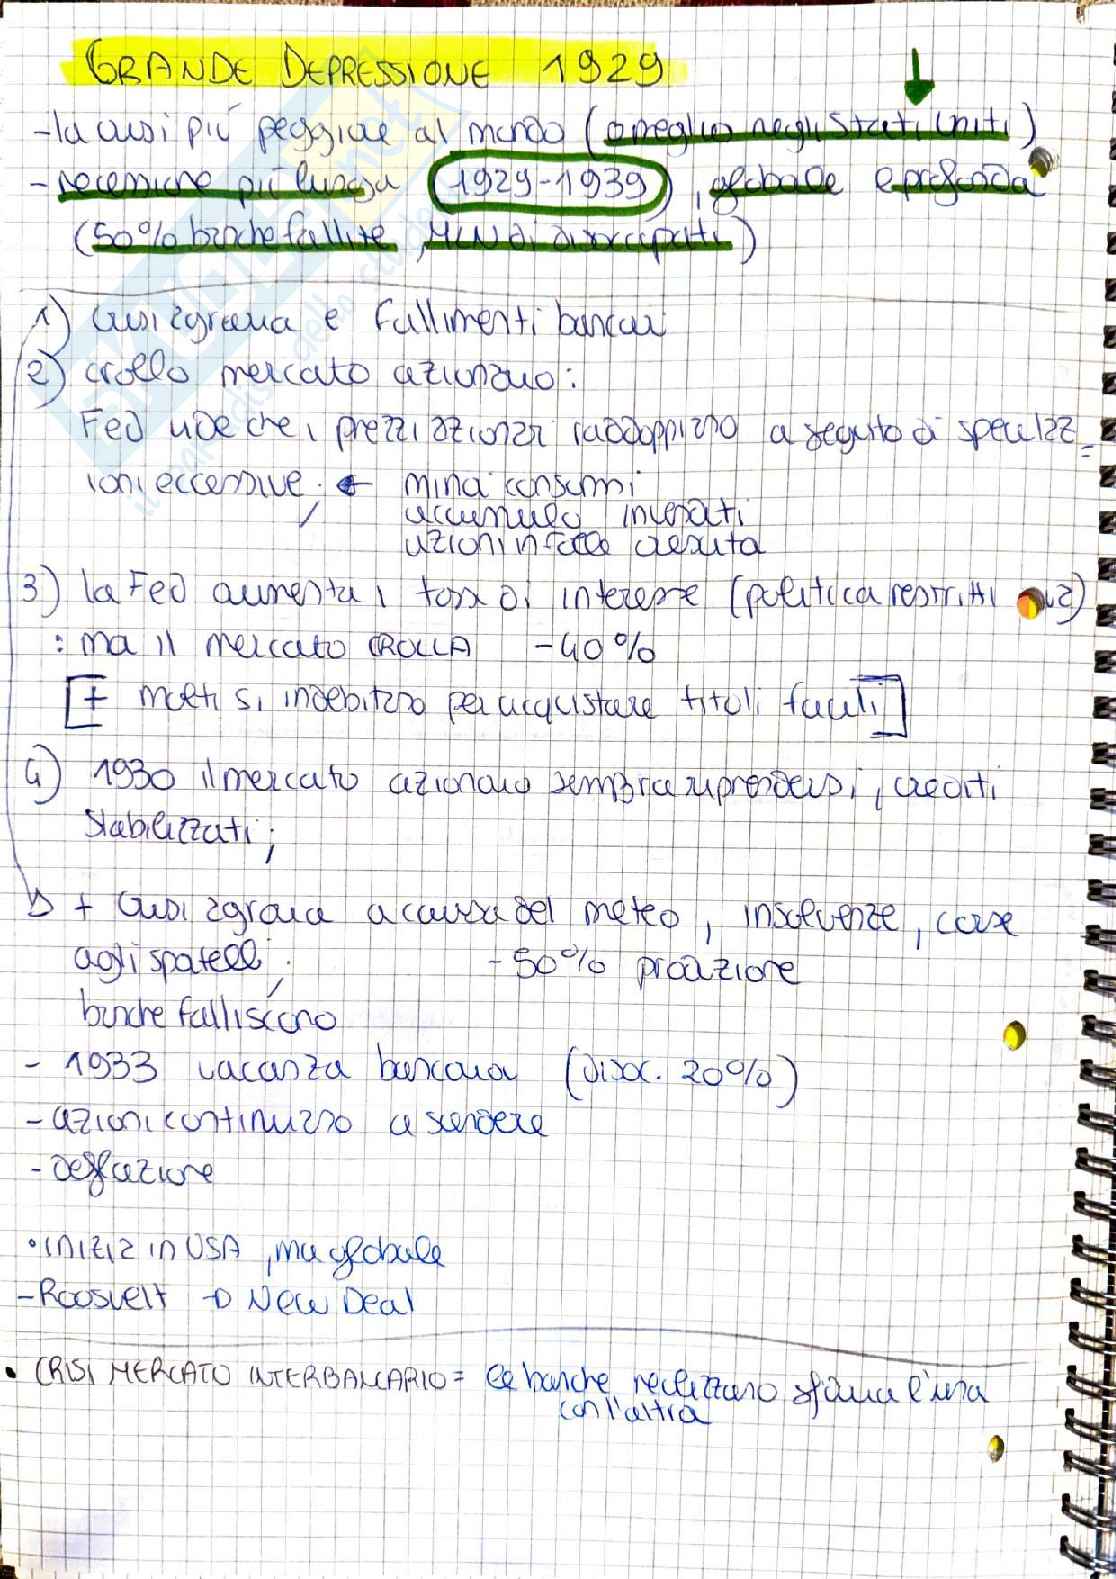 GRANDE DEPRESSIONE 1929
- la crisi più peggiore al mondo (o meglio negli Stati Uniti)
- recessione più lunga (1929-1939), globale e profonda
(50% banche fallite, MLN di disoccupati)
1) Crisi agraria e fallimenti bancari
2) crollo mercato azionario:
Fed vede che i prezzi azionari raddoppiano a seguito di specolaz-
ioni eccessive; ← mina consumi
accumulo invenduti
azioni in folle crescita
3) la Fed aumenta i tassi di interesse (politica restrittiva)
: ma il mercato CROLLA -40%
[+ molti si indebitano per acquistare titoli facili]
4) 1930 il mercato azionario sembra riprendersi, crediti
stabilizzati;
→ + crisi agraria a causa del meteo, insolvenze, corse
agli sportelli; -50% produzione
banche falliscono
- 1933 vacanza bancaria (disoc. 20%)
- azioni continuano a scendere
- deflazione
• inizia in USA, ma globale
- Roosvelt → New Deal
• CRISI MERCATO INTERBANCARIO = le banche realizzano sfiducia l'una
con l'altra